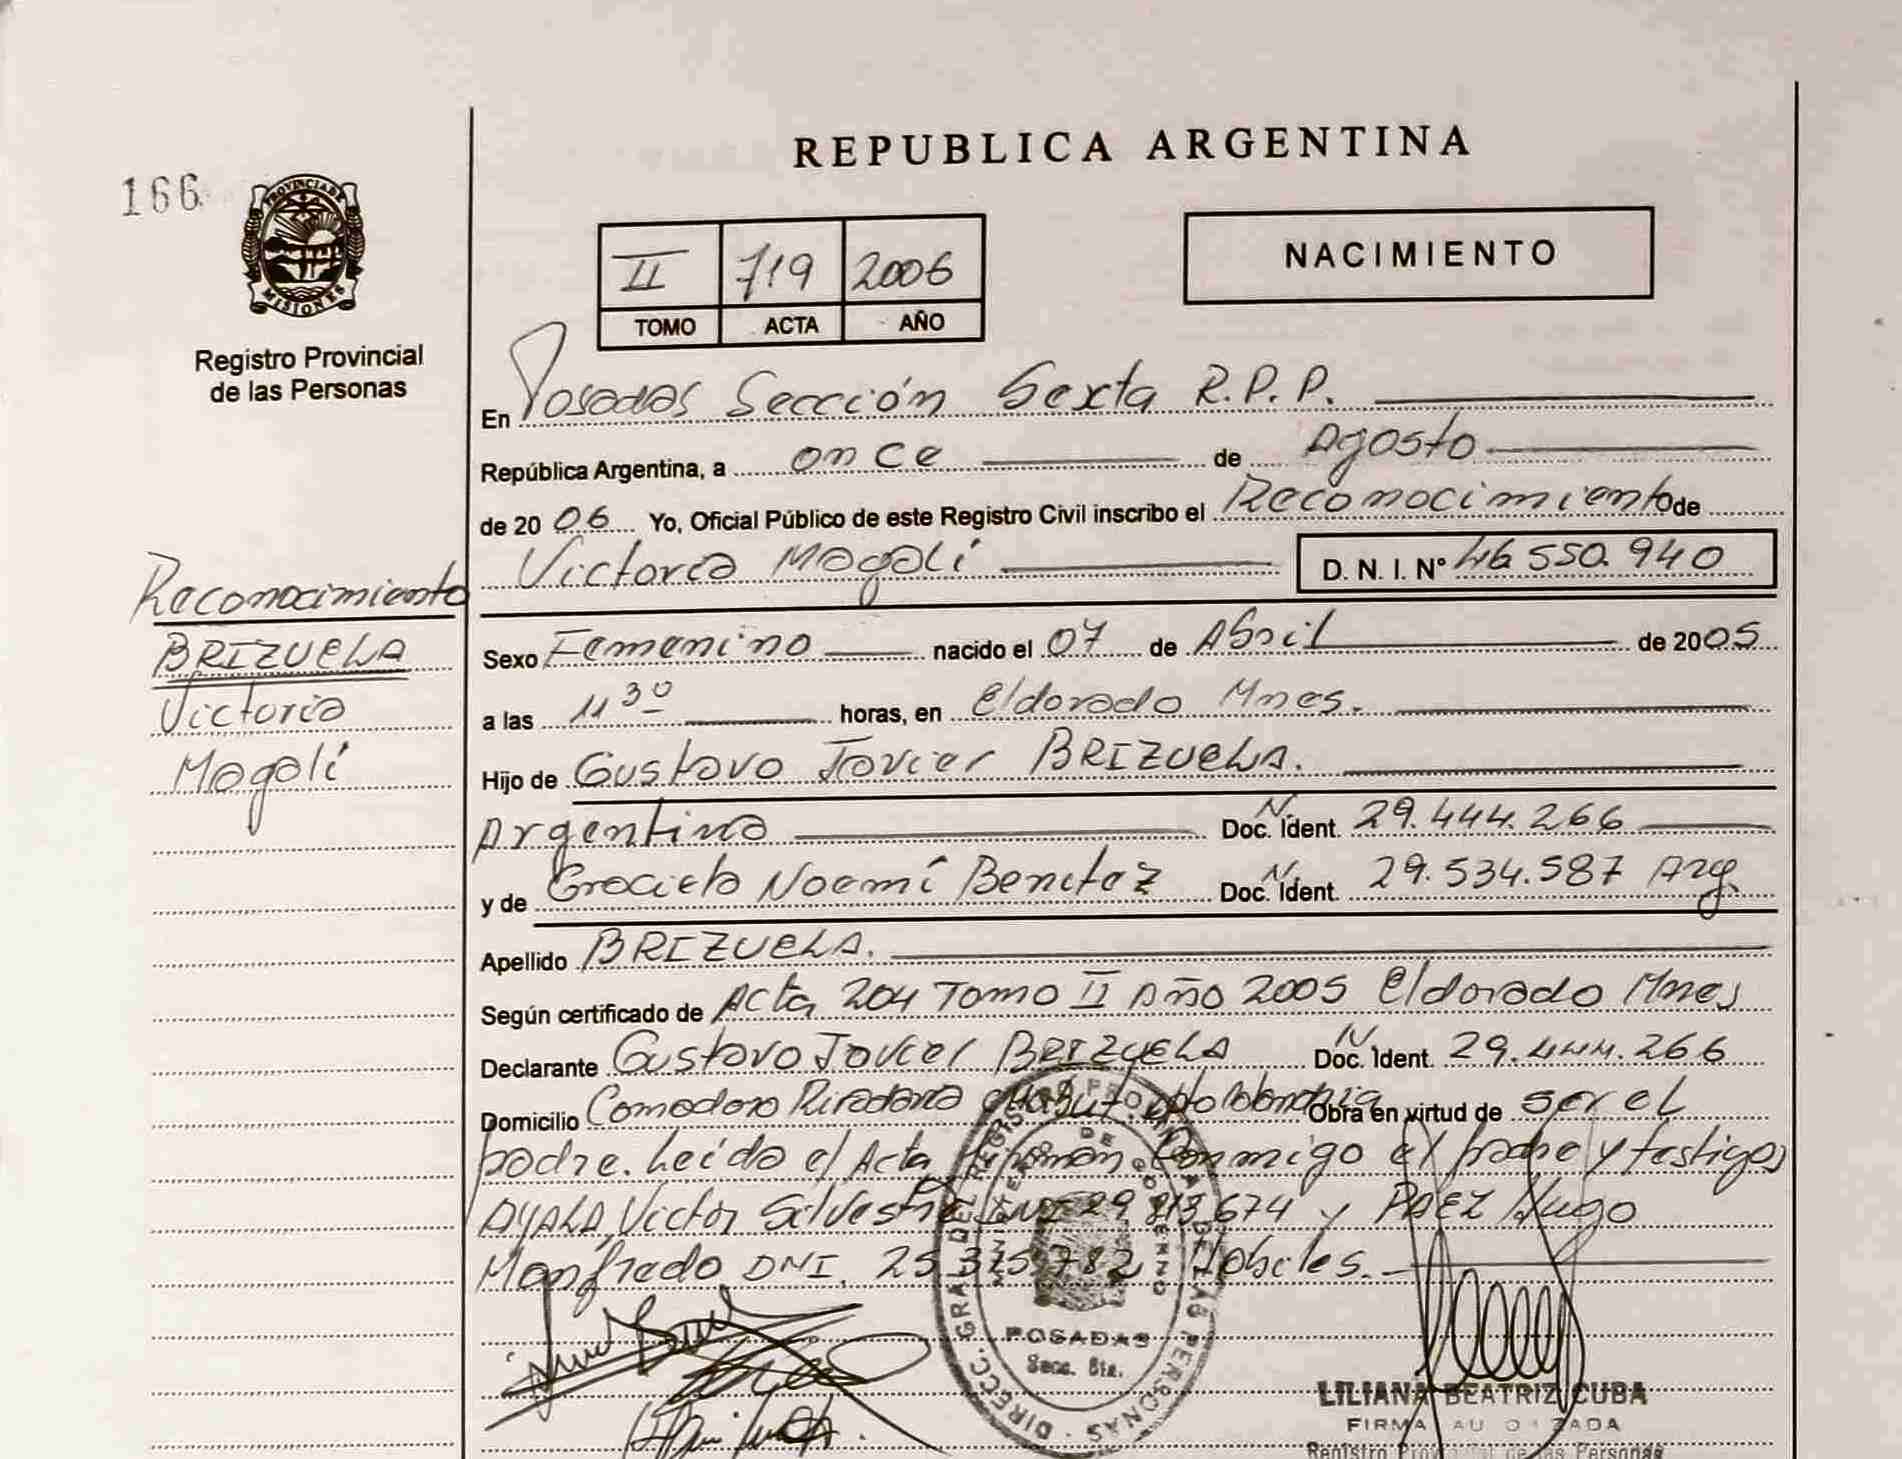 REPUBLICA ARGENTINA
166
PROVINCIA DE MISIONES
Registro Provincial
de las Personas
II 719 2006
TOMO ACTA AÑO
NACIMIENTO
En Posadas Sección Sexta R.P.P.
República Argentina, a once de Agosto
de 2006 Yo, Oficial Público de este Registro Civil inscribo el Reconocimiento de
Victoria Magalí D. N. I. Nº 46 550. 940
Reconocimiento
BRIZUELA
Victoria
Magalí
Sexo Femenino nacido el 07 de Abril de 2005
a las 11 30 horas, en Eldorado Mnes.
Hijo de Gustavo Javier BRIZUELA.
Argentino Doc. N. Ident. 29.444.266
y de Graciela Noemí Benitez Doc. N. Ident. 29.534.587 Arg.
Apellido BRIZUELA.
Según certificado de Acta 204 Tomo II Año 2005 Eldorado Mnes
Declarante Gustavo Javier BRIZUELA Doc. N. Ident. 29.444.266
Domicilio Comodoro Rivadavia Obra en virtud de ser el
padre. Leído el Acta firman conmigo el padre y testigos
AYALA, Victor Silvestre DNI 29 813 674 y PAEZ Hugo
Manfredo DNI. 25 375 782 Hábiles.
DIRECC. GRAL. DEL REGISTRO PROVINCIAL DE LAS PERSONAS
MINISTERIO DE GOBIERNO
POSADAS
Secc. 6ta.
LILIANA BEATRIZ CUBA
FIRMA AUTORIZADA
Registro Provincial de las Personas